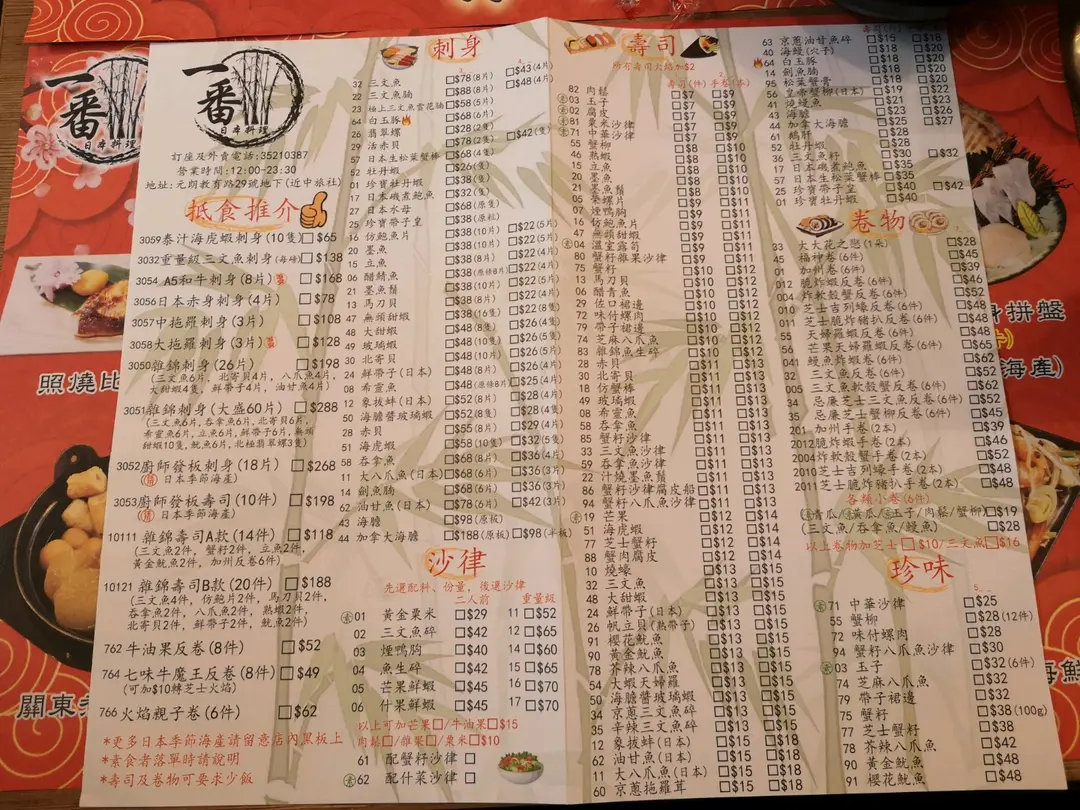 一番
日本料理
訂座及外賣電話:35210387
營業時間:12:00-23:30
地址:元朗教育路29號地下(近中旅社)
抵食推介
3059泰汁海虎蝦刺身(10隻) $65
3032重量級三文魚刺身(每磅) $138
3054 A5和牛刺身(8片) $168
3056日本赤身刺身(4片) $78
3057中拖羅刺身(3片) $108
3058大拖羅刺身(3片) $128
3050雜錦刺身(26片) $198
(三文魚6片, 北寄貝4片, 八爪魚4片,
大甜蝦4隻, 鮮帶子4片, 油甘魚4片)
3051雜錦刺身(大盛60片) $288
3052廚師發板刺身(18片) $268
日本季節海產
3053廚師發板壽司(10件) $198
日本季節海產
10111 雜錦壽司A款(14件) $118
(三文魚2件, 蟹籽2件, 立魚2件,
黃金魷魚2件, 加州反卷6件)
10121 雜錦壽司B款(20件) $188
(三文魚4件, 仿鮑片2件, 馬刀貝2件,
吞拿魚2件, 八爪魚2件, 熟蝦2件,
北寄貝2件, 鮮帶子2件, 魷魚2件)
762 牛油果反卷(8件) $52
764 七味牛魔王反卷(8件) $49
(可加$10轉芝士火焰)
766 火焰親子卷(6件) $62
*更多日本季節海產請留意店內黑板上
*素食者落單時請說明
*壽司及卷物可要求少飯
刺身
32 三文魚
22 三文魚腩
23 極上三文魚雪花腩
64 白玉豚
26 翡翠螺
29 活赤貝
57 日本生松葉蟹棒
52 牡丹蝦
01 珍寶牡丹蝦
17 日本磯煮鮑魚
27 日本水母
25 珍寶帶子皇
16 仿鮑魚片
20 墨魚
15 立魚
36 醋鯖魚
21 墨魚鬚
13 馬刀貝
47 無頭甜蝦
48 大甜蝦
49 玻璃蝦
30 北寄貝
24 鮮帶子(日本)
08 希靈魚
12 象拔蚌(日本)
50 海膽醬玻璃蝦
28 赤貝
51 海虎蝦
58 吞拿魚
11 大八爪魚(日本)
14 劍魚腩
62 油甘魚(日本)
43 海膽 $98(原板)
44 加拿大海膽 $188(原板) $98(半板)
沙律
先選配料、份量, 後選沙律
二人前 重量級
01 黃金粟米 $29 11 $52
02 三文魚碎 $42 12 $65
03 煙鴨胸 $40 14 $60
04 魚生碎 $42 15 $65
05 芒果鮮蝦 $45 16 $70
06 什果鮮蝦 $45 17 $70
以上可加芒果/牛油果 $15
肉鬆/雜果/粟米 $10
61 配蟹籽沙律
62 配什菜沙律
壽司
所有壽司火焰加$2
壽司(件) 手卷(本)
82 肉鬆 $7 $9
03 玉子 $7 $9
02 腐皮 $7 $9
81 粟米沙律 $7 $9
71 中華沙律 $7 $9
55 蟹柳 $8 $10
46 熟蝦 $8 $10
15 立魚 $8 $10
20 墨魚 $8 $10
21 墨魚鬚 $8 $10
05 翠螺片
07 煙鴨胸 $9 $11
16 仿鮑魚片 $9 $11
47 無頭甜蝦 $9 $11
04 溫室露筍 $9 $11
80 蟹籽雜果沙律 $9 $11
75 蟹籽 $10 $12
13 馬刀貝 $10 $12
06 醋青魚 $10 $12
29 佐口裙邊 $10 $12
72 味付螺肉 $10 $12
79 帶子裙邊 $10 $12
74 芝麻八爪魚 $10 $12
83 雜錦魚生碎 $10 $12
28 赤貝 $11 $13
30 北寄貝 $11 $13
18 仿蟹棒 $11 $13
49 玻璃蝦 $11 $13
08 希靈魚 $11 $13
58 吞拿魚 $11 $13
85 蟹籽沙律 $11 $13
33 三文魚沙律 $11 $13
59 吞拿魚沙律 $11 $13
22 汁燒墨魚鬚 $11 $13
86 蟹籽沙律腐皮船 $11 $13
94 蟹籽八爪魚沙律 $11 $13
19 芒果 $12 $14
51 海虎蝦 $12 $14
77 芝士蟹籽 $12 $14
88 蟹肉腐皮 $12 $14
10 燒蠔
32 三文魚 $13 $15
48 大甜蝦 $13 $15
24 鮮帶子(日本) $13 $15
26 帆立貝(熟帶子) $13 $15
91 櫻花魷魚 $13 $15
90 黃金魷魚 $13 $15
78 芥辣八爪魚 $13 $15
54 大蝦天婦羅 $13 $15
50 海膽醬玻璃蝦 $13 $15
34 京蔥三文魚碎 $13 $15
35 辛辣三文魚碎 $13 $15
12 象拔蚌(日本) $15 $18
62 油甘魚(日本) $15 $18
11 大八爪魚(日本) $15 $18
60 京蔥拖羅茸 $15 $18
63 京蔥油甘魚碎 $15 $18
40 海鰻(穴子) $18 $20
64 白玉豚 $18 $20
14 劍魚腩 $18 $20
95 松葉蟹膏 $18 $20
56 皇帝蟹柳(日本) $19 $22
41 燒鰻魚 $21 $23
43 海膽 $23 $26
44 加拿大海膽 $25 $27
61 鵝肝 $28
52 牡丹蝦 $28
36 三文魚籽 $30 $32
17 日本磯煮鮑魚 $35
57 日本生松葉蟹棒 $35
25 珍寶帶子皇 $40 $42
01 珍寶牡丹蝦 $40
卷物
33 大大花之戀(1朵) $28
45 福神卷(6件) $45
01 加州卷(6件) $39
012 脆炸蝦反卷(6件)
004 炸軟殼蟹反卷(6件) $52
010 芝士吉列蠔反卷(6件) $48
011 芝士脆炸豬扒反卷(6件) $48
055 天婦羅蝦反卷(6件) $48
056 芒果天婦羅蝦反卷(6件) $65
041 鰻魚炸蝦卷(6件) $62
32 三文魚反卷(6件) $48
005 三文魚軟殼蟹反卷(6件) $62
34 忌廉芝士三文魚反卷(6件) $52
35 忌廉芝士蟹柳反卷(6件) $45
201 加州手卷(2本) $39
2012脆炸蝦手卷(2本) $46
2004炸軟殼蟹手卷(2本) $52
2010芝士吉列蠔手卷(2本) $48
2011芝士脆炸豬扒手卷(2本) $48
各類小卷(6件)
青瓜/黃瓜/玉子/肉鬆/蟹柳 $19
(三文魚/吞拿魚/鰻魚) $28
以上卷物加芝士 $10/三文魚 $16
珍味
71 中華沙律 $25
55 蟹柳 $28(12件)
72 味付螺肉 $28
94 蟹籽八爪魚沙律 $30
03 玉子 $32(6件)
74 芝麻八爪魚 $32
79 帶子裙邊 $32
75 蟹籽 $38(100g)
77 芝士蟹籽 $38
78 芥辣八爪魚 $42
90 黃金魷魚 $48
91 櫻花魷魚 $48
一番
日本料理
照燒比
關東煮
身拼盤
海產)
海鮮